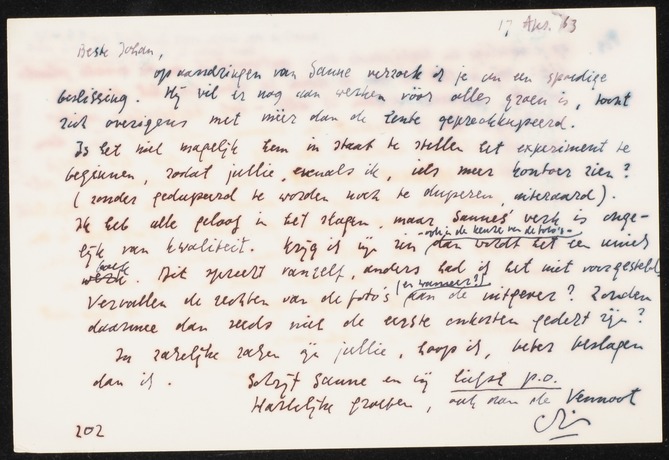 17 Apr. '63
Beste Johan,
op aandringen van Sanne verzoek ik je om een spoedige
beslissing. Hij wil er nog aan werken vóór alles groen is, toont
zich overigens met méér dan de lente gepreokkupeerd.
Is het niet mogelijk hem in staat te stellen het experiment te
beginnen, zodat jullie, evenals ik, iets meer kontoer zien?
(zonder gedupeerd te worden noch te duperen, uiteraard).
Ik heb alle geloof in het slagen, maar Sannes' werk is onge-
- ook in de keuze van de foto's -
lijk van kwaliteit. Krijg ik mijn zin dan wordt het een uniek
boek
werk. Dit spreekt vanzelf, anders had ik het niet voorgesteld
(en wanneer?)
Vervallen de rechten van de foto's aan de uitgever? Zouden
daarmee dan reeds niet de eerste onkosten gedekt zijn?
In zakelijke zaken zijn jullie, hoop ik, beter beslagen
dan ik. Schrijf Sanne en mij liefst p.o.
Hartelijke groeten, ook aan de Vennoot
202